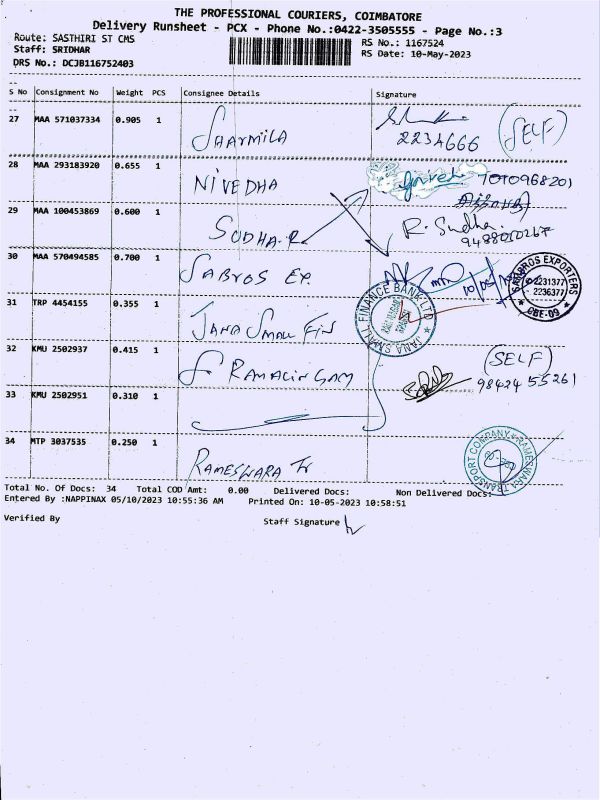 THE PROFESSIONAL COURIERS, COIMBATORE
Delivery Runsheet - PCX - Phone No.:0422-3505555 - Page No.:3
Route: SASTHIRI ST CMS
Staff: SRIDHAR
DRS No.: DCJB116752403
RS No.: 1167524
RS Date: 10-May-2023
S No Consignment No Weight PCS Consignee Details Signature
27 MAA 571037334 0.905 1 SHARMILA 2234666 (SELF)
28 MAA 293183920 0.655 1 NIVEDHA 7010968201
29 MAA 100453869 0.600 1 SUDHA.R R. Sudha
30 MAA 570494585 0.700 1 SABROS EX.
SABROS EXPORTERS
2231377
2236377
CBE-09
31 TRP 4454155 0.355 1 JANA SMALL FIN
JANA SMALL FINANCE BANK LTD
32 KMU 2502937 0.415 1 S RAMALINGAM (SELF)
98424 55261
33 KMU 2502951 0.310 1
34 MTP 3037535 0.250 1 RAMESWARA Tr
RAMESWARA TRANSPORT COMPANY
Total No. Of Docs: 34 Total COD Amt: 0.00 Delivered Docs: Non Delivered Docs:
Entered By :NAPPINAX 05/10/2023 10:55:36 AM Printed On: 10-05-2023 10:58:51
Verified By Staff Signature